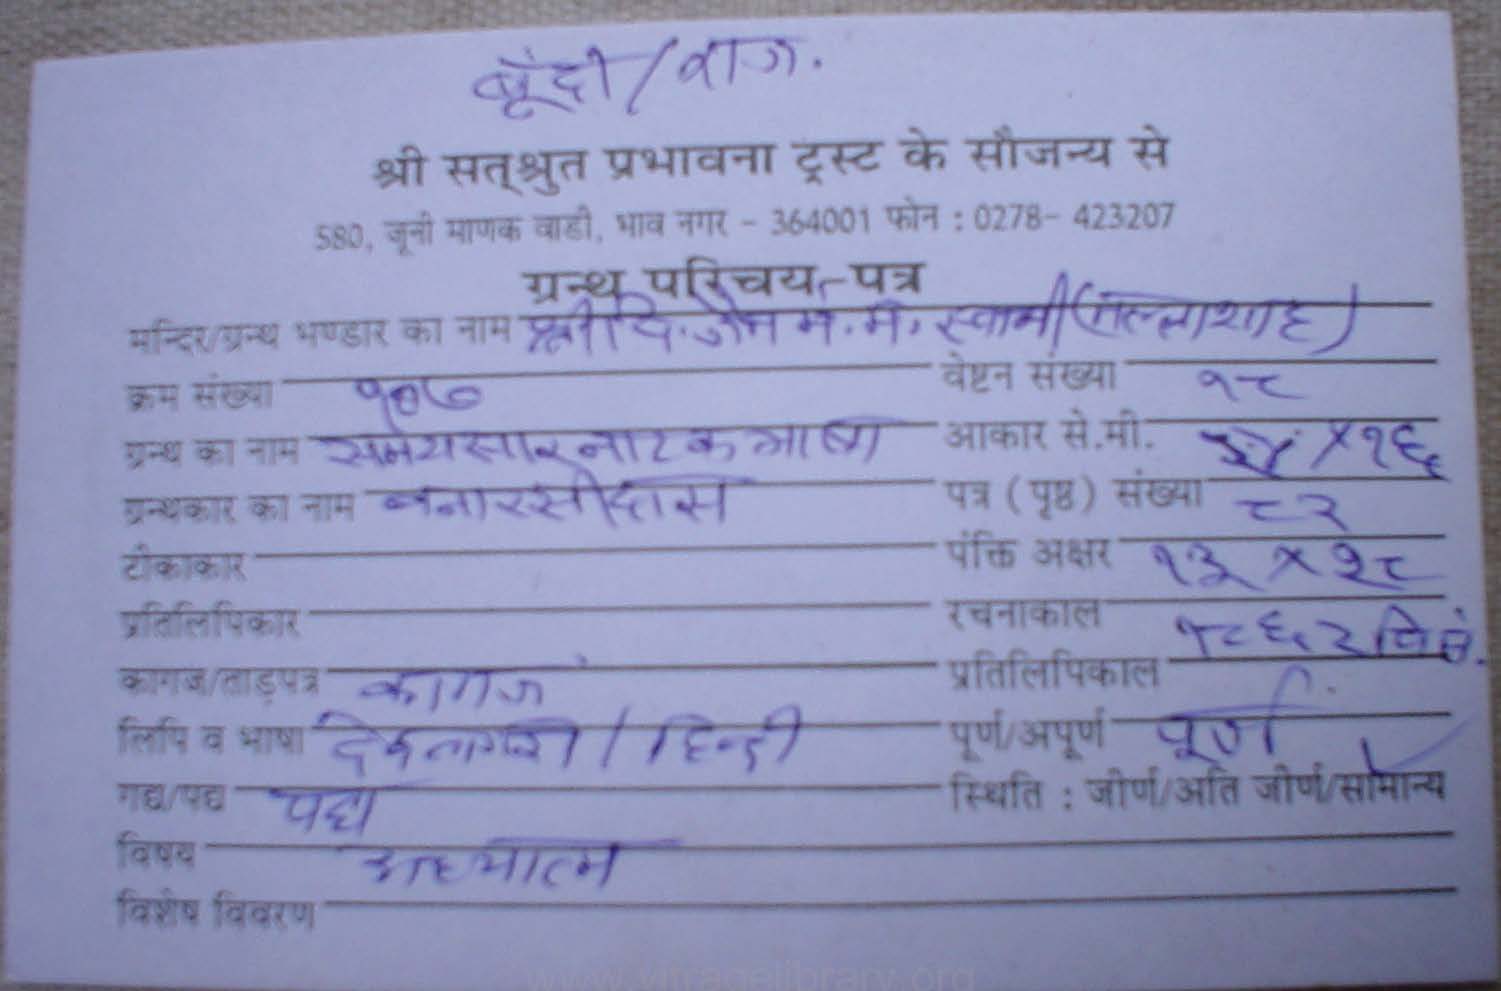 बूंदी / राज.
श्री सत्श्रुत प्रभावना ट्रस्ट के सौजन्य से
580, जूनी माणक वाडी, भाव नगर - 364001 फोन : 0278- 423207
ग्रन्थ परिचय-पत्र
मन्दिर/ग्रन्थ भण्डार का नाम श्री दि. जैन मं. नै. स्वामी (मल्लाशाह)
क्रम संख्या १०७ वेष्टन संख्या १८
ग्रन्थ का नाम समयसार नाटक भाषा आकार से.मी. × १६
ग्रन्थकार का नाम बनारसीदास पत्र (पृष्ठ) संख्या ८२
टीकाकार पंक्ति अक्षर १३ × २८
प्रतिलिपिकार रचनाकाल १८६२ वि सं.
कागज/ताड़पत्र कागज प्रतिलिपिकाल
लिपि व भाषा देवनागरी / हिन्दी पूर्ण/अपूर्ण पूर्ण
गद्य/पद्य पद्य स्थिति : जीर्ण/अति जीर्ण/सामान्य
विषय अध्यात्म
विशेष विवरण
www.vitragelibrary.org